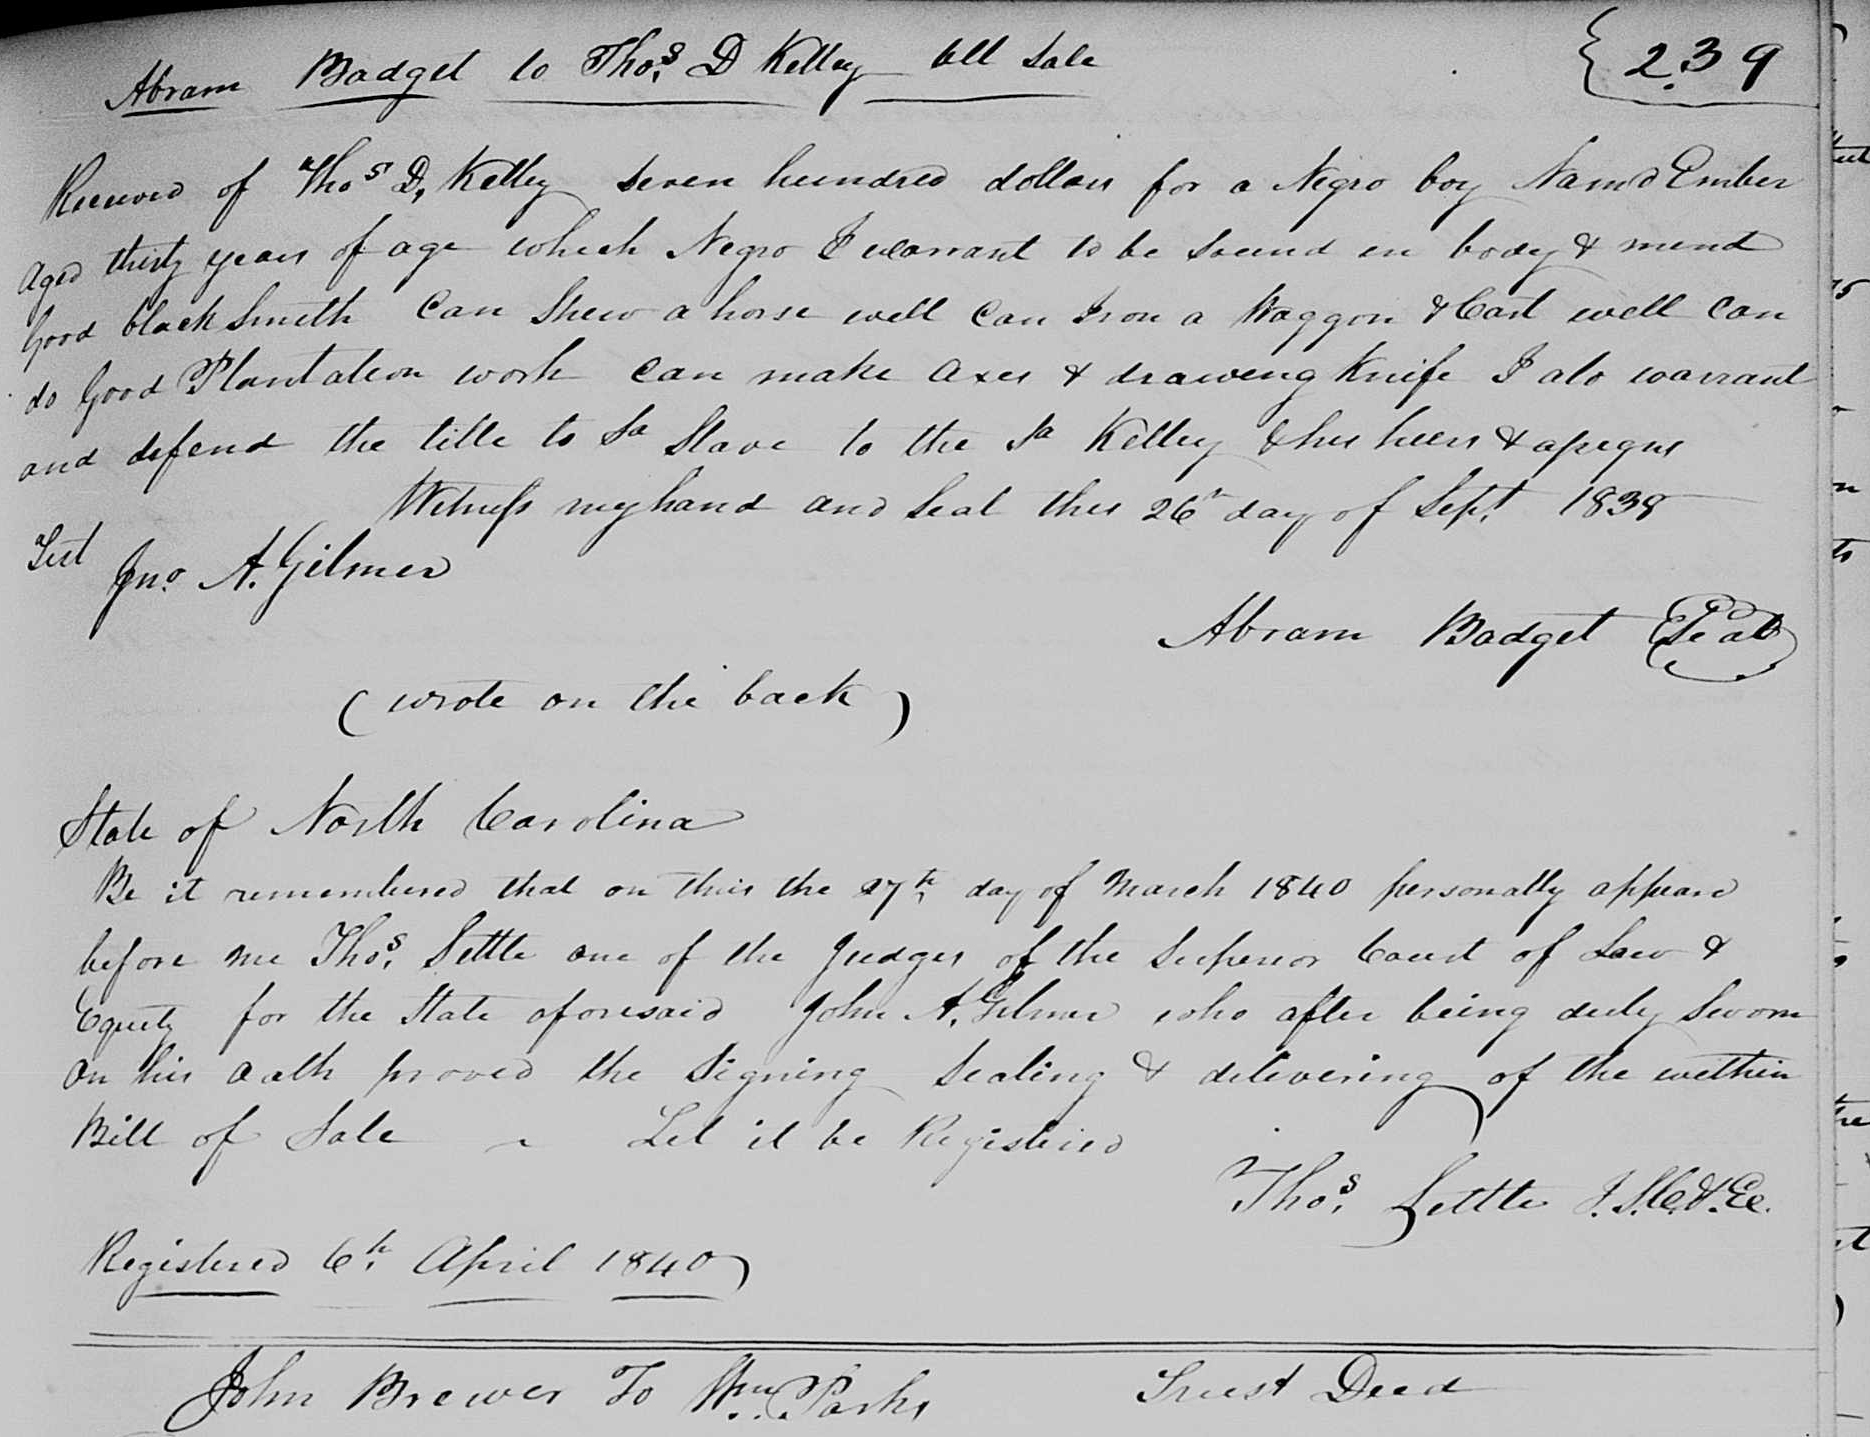 Abram Badget to Thos. D Kelley bll Sale
239
Received of Thos D, Kelley seven hundred dollars for a Negro boy Namd Ember
Aged thirty years of age which Negro I warrant to be Sound in body & mind
Good black Smith Can Shew a horse well Can Iron a Waggon & Cart well can
do Good Plantation work can make axes & drawing Knife I also warrant
and defend the title to Sd Slave to the Sd Kelley & his heirs & assigns
Witness my hand and Seal this 26th day of Sept. 1838
Test
Jno. A. Gilmer
Abram Badget Seal
(wrote on the back)
State of North Carolina
Be it remembered that on this the 27th day of March 1840 personally appeard
before me Thos. Settle one of the Judges of the Superior Court of Law &
Equity for the State aforesaid John A. Gilmer who after being duly Sworn
on his oath proved the Signing Sealing & delivering of the within
Bill of Sale ~ Let it be Registered
Thos. Settle J. S. C. & E.
Registered 6th. April 1840
John Brewer To Wm. Parks Trust Deed